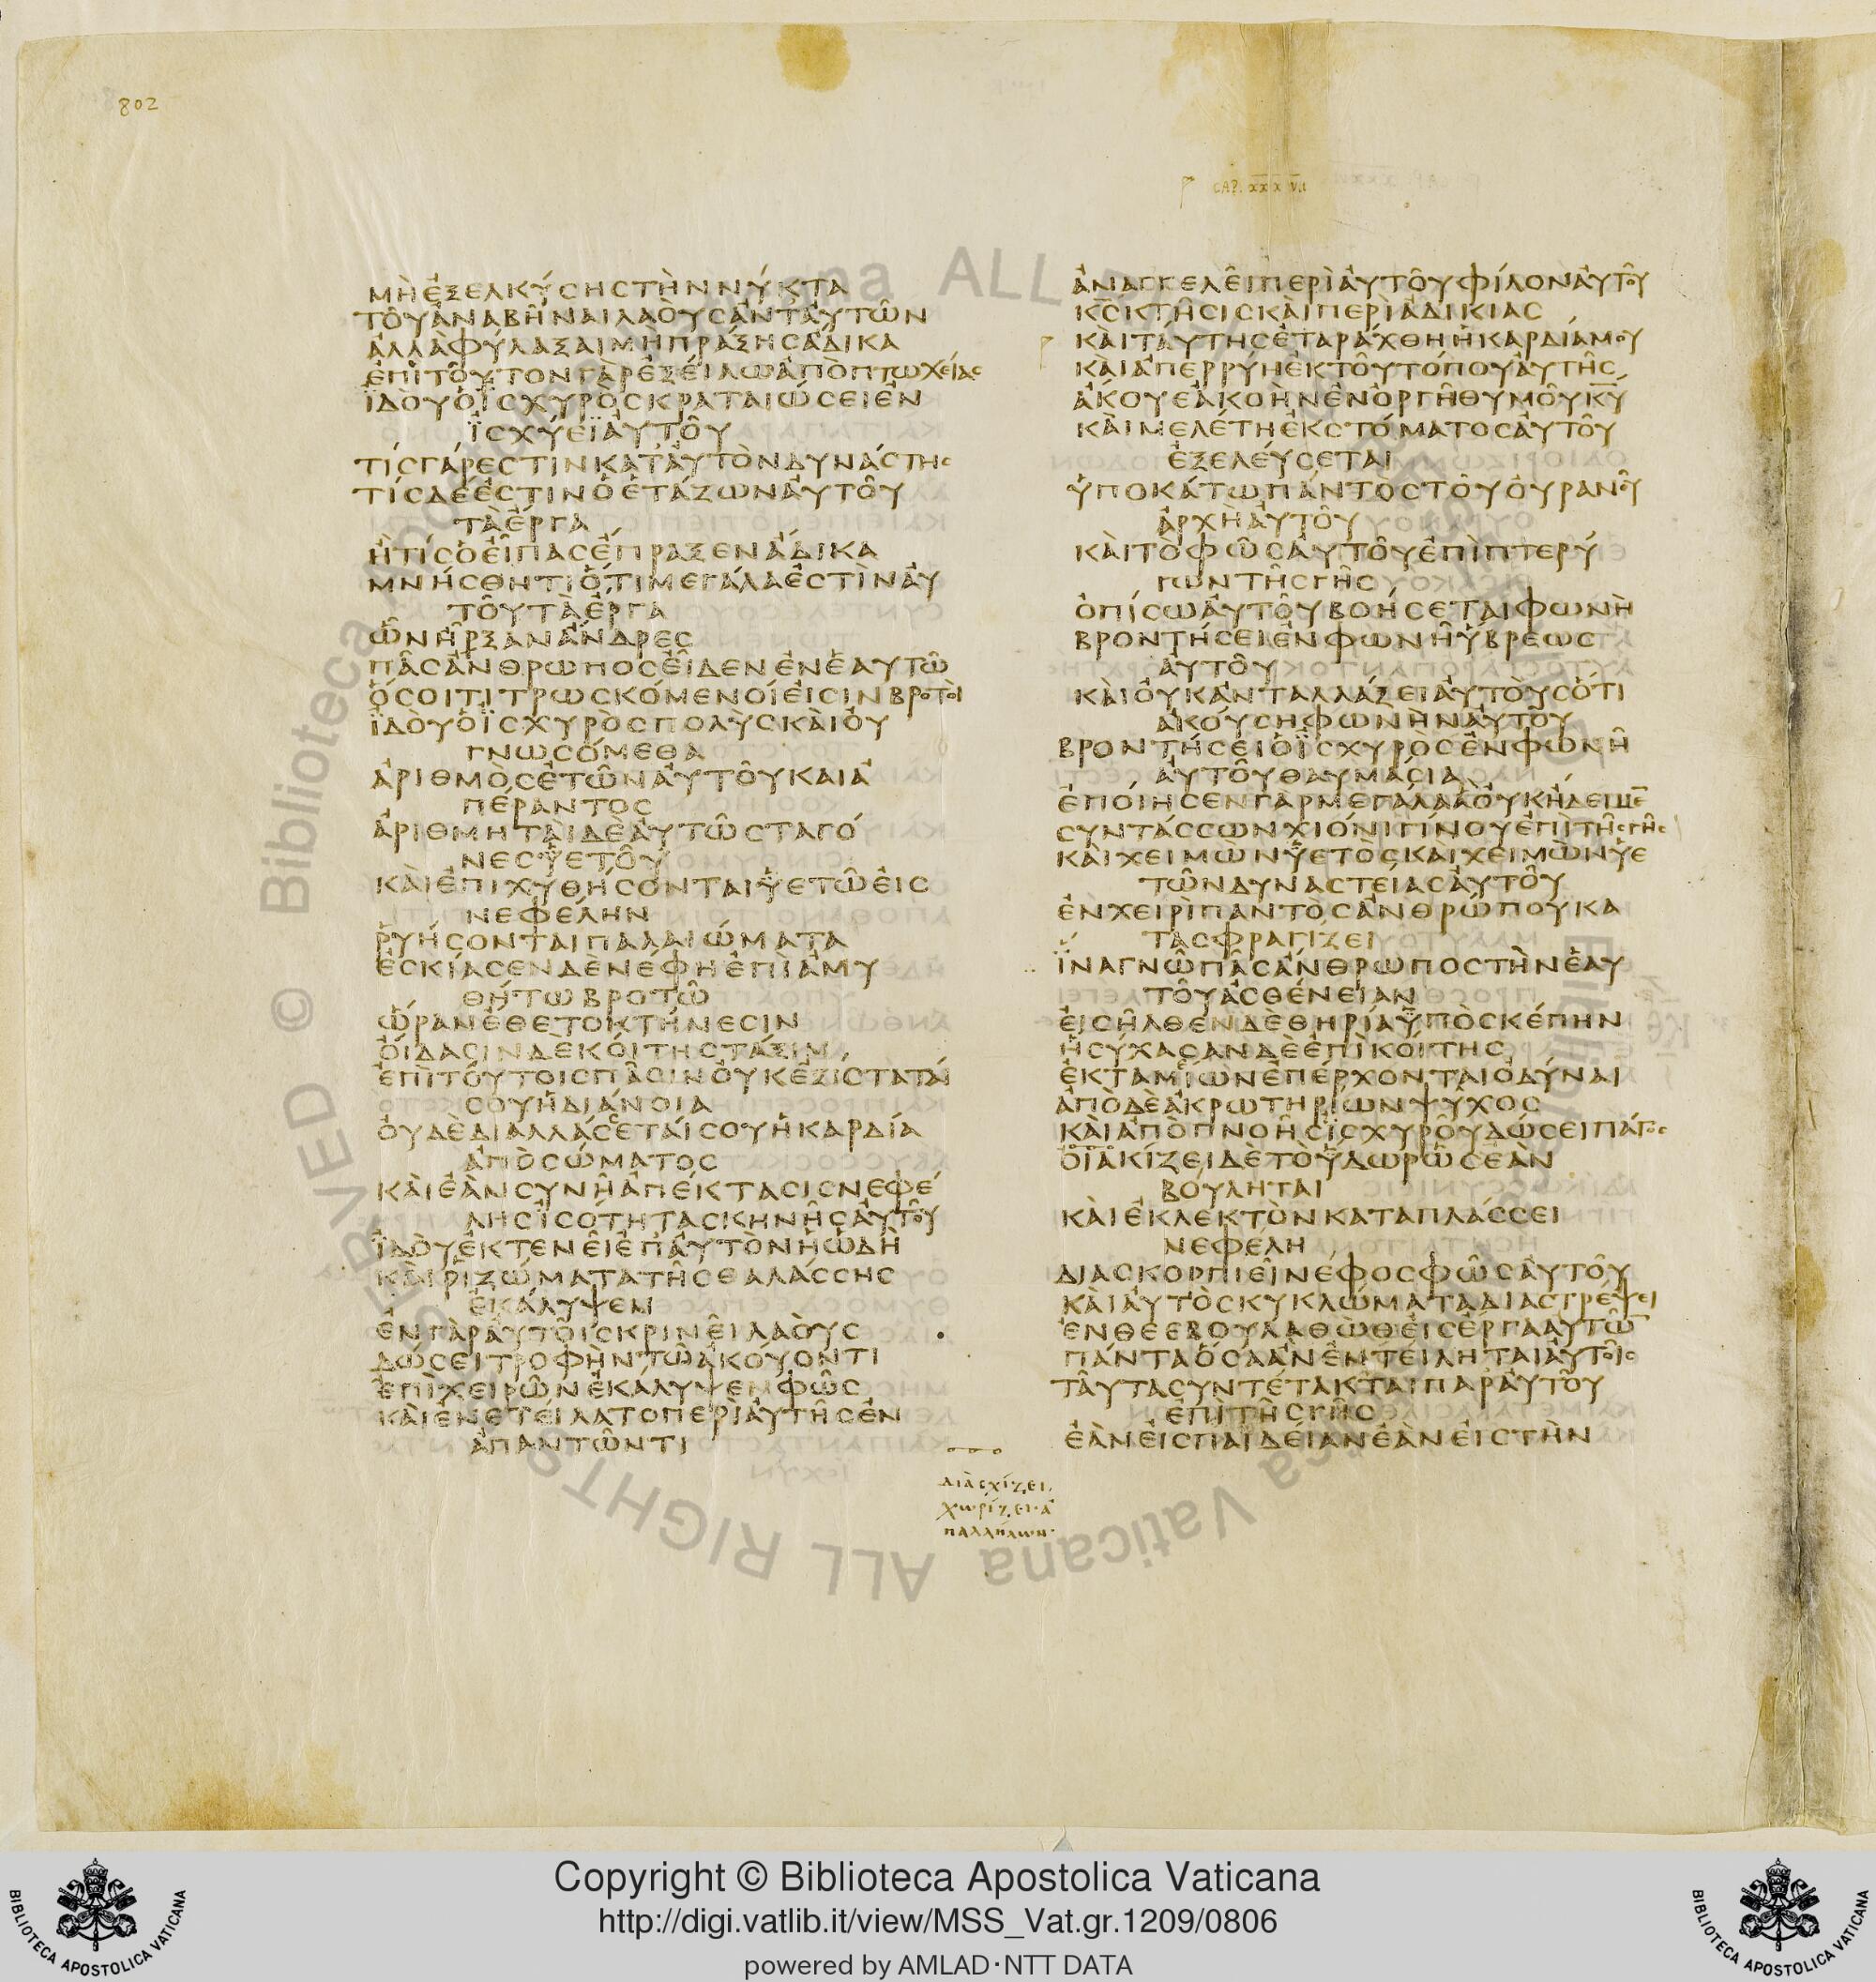 802
CAP. XXXVII
ΜΗΕΞΕΛΚΥΣΗΣΤΗΝΝΥΚΤΑ
ΤΟΥΑΝΑΒΗΝΑΙΛΑΟΥΣΑΝΤΑΥΤΩΝ
ΑΛΛΑΦΥΛΑΞΑΙΜΗΠΡΑΞΗΣΑΔΙΚΑ
ΕΠΙΤΟΥΤΟΝΓΑΡΕΞΕΙΛΩΑΠΟΠΤΩΧΕΙΑΣ
ΪΔΟΥΟΪΣΧΥΡΟΣΚΡΑΤΑΙΩΣΕΙΕΝ
ΪΣΧΥΕΙΑΥΤΟΥ
ΤΙΣΓΑΡΕΣΤΙΝΚΑΤΑΥΤΟΝΔΥΝΑΣΤΗΣ
ΤΙΣΔΕΕΣΤΙΝΟΕΤΑΖΩΝΑΥΤΟΥ
ΤΑΕΡΓΑ
ΗΤΙΣΟΕΙΠΑΣΕΠΡΑΞΕΝΑΔΙΚΑ
ΜΝΗΣΘΗΤΙΟΤΙΜΕΓΑΛΑΕΣΤΙΝΑΥ
ΤΟΥΤΑΕΡΓΑ
ΩΝΗΡΞΑΝΑΝΔΡΕΣ
ΠΑΣΑΝΘΡΩΠΟΣΕΙΔΕΝΕΝΕΑΥΤΩ
ΟΣΟΙΤΙΤΡΩΣΚΟΜΕΝΟΙΕΙΣΙΝΒΡΟΤΟΙ
ΪΔΟΥΟΪΣΧΥΡΟΣΠΟΛΥΣΚΑΙΟΥ
ΓΝΩΣΟΜΕΘΑ
ΑΡΙΘΜΟΣΕΤΩΝΑΥΤΟΥΚΑΙΑ
ΠΕΡΑΝΤΟΣ
ΑΡΙΘΜΗΤΑΙΔΕΑΥΤΩΣΤΑΓΟ
ΝΕΣΫΕΤΟΥ
ΚΑΙΕΠΙΧΥΘΗΣΟΝΤΑΙΫΕΤΩΕΙΣ
ΝΕΦΕΛΗΝ
ΡΥΗΣΟΝΤΑΙΠΑΛΑΙΩΜΑΤΑ
ΕΣΚΙΑΣΕΝΔΕΝΕΦΗΕΠΙΑΜΥ
ΘΗΤΩΒΡΟΤΩ
ΩΡΑΝΕΘΕΤΟΚΤΗΝΕΣΙΝ
ΟΙΔΑΣΙΝΔΕΚΟΙΤΗΣΤΑΞΙΝ
ΕΠΙΤΟΥΤΟΙΣΠΑΣΙΝΟΥΚΕΞΙΣΤΑΤΑΙ
ΣΟΥΗΔΙΑΝΟΙΑ
ΟΥΔΕΔΙΑΛΛΑΣΕΤΑΙΣΟΥΗΚΑΡΔΙΑ
ΑΠΟΣΩΜΑΤΟΣ
ΚΑΙΕΑΝΣΥΝΗΑΠΕΚΤΑΣΙΣΝΕΦΕ
ΛΗΣΪΣΟΤΗΤΑΣΚΗΝΗΣΑΥΤΟΥ
ΪΔΟΥΕΚΤΕΝΕΙΕΠΑΥΤΟΝΗΩΔΗ
ΚΑΙΡΙΖΩΜΑΤΑΤΗΣΘΑΛΑΣΣΗΣ
ΕΚΑΛΥΨΕΝ
ΕΝΓΑΡΑΥΤΟΙΣΚΡΙΝΕΙΛΑΟΥΣ
ΔΩΣΕΙΤΡΟΦΗΝΤΩΑΚΟΥΟΝΤΙ
ΕΠΙΧΕΙΡΩΝΕΚΑΛΥΨΕΝΦΩΣ
ΚΑΙΕΝΕΤΕΙΛΑΤΟΠΕΡΙΑΥΤΗΣΕΝ
ΑΠΑΝΤΩΝΤΙ
ΑΝΑΓΓΕΛΕΙΠΕΡΙΑΥΤΟΥΦΙΛΟΝΑΥΤΟΥ
ΚΣΚΤΗΣΙΣΚΑΙΠΕΡΙΑΔΙΚΙΑΣ
ΚΑΙΤΑΥΤΗΣΕΤΑΡΑΧΘΗΗΚΑΡΔΙΑΜΟΥ
ΚΑΙΑΠΕΡΡΥΗΕΚΤΟΥΤΟΠΟΥΑΥΤΗΣ
ΑΚΟΥΕΑΚΟΗΝΕΝΟΡΓΗΘΥΜΟΥΚΥ
ΚΑΙΜΕΛΕΤΗΕΚΣΤΟΜΑΤΟΣΑΥΤΟΥ
ΕΞΕΛΕΥΣΕΤΑΙ
ΥΠΟΚΑΤΩΠΑΝΤΟΣΤΟΥΟΥΡΑΝΟΥ
ΑΡΧΗΑΥΤΟΥ
ΚΑΙΤΟΦΩΣΑΥΤΟΥΕΠΙΠΤΕΡΥ
ΓΩΝΤΗΣΓΗΣ
ΟΠΙΣΩΑΥΤΟΥΒΟΗΣΕΤΑΙΦΩΝΗ
ΒΡΟΝΤΗΣΕΙΕΝΦΩΝΗΥΒΡΕΩΣ
ΑΥΤΟΥ
ΚΑΙΟΥΚΑΝΤΑΛΛΑΞΕΙΑΥΤΟΥΣΟΤΙ
ΑΚΟΥΣΗΦΩΝΗΝΑΥΤΟΥ
ΒΡΟΝΤΗΣΕΙΟΪΣΧΥΡΟΣΕΝΦΩΝΗ
ΑΥΤΟΥΘΑΥΜΑΣΙΑ
ΕΠΟΙΗΣΕΝΓΑΡΜΕΓΑΛΑΑΟΥΚΗΔΕΙΜΕ
ΣΥΝΤΑΣΣΩΝΧΙΟΝΙΓΙΝΟΥΕΠΙΤΗΣΓΗΣ
ΚΑΙΧΕΙΜΩΝΫΕΤΟΣΚΑΙΧΕΙΜΩΝΫΕ
ΤΩΝΔΥΝΑΣΤΕΙΑΣΑΥΤΟΥ
ΕΝΧΕΙΡΙΠΑΝΤΟΣΑΝΘΡΩΠΟΥΚΑ
ΤΑΣΦΡΑΓΙΖΕΙ
ΪΝΑΓΝΩΠΑΣΑΝΘΡΩΠΟΣΤΗΝΕΑΥ
ΤΟΥΑΣΘΕΝΕΙΑΝ
ΕΙΣΗΛΘΕΝΔΕΘΗΡΙΑΫΠΟΣΚΕΠΗΝ
ΗΣΥΧΑΣΑΝΔΕΕΠΙΚΟΙΤΗΣ
ΕΚΤΑΜΙΩΝΕΠΕΡΧΟΝΤΑΙΟΔΥΝΑΙ
ΑΠΟΔΕΑΚΡΩΤΗΡΙΩΝΨΥΧΟΣ
ΚΑΙΑΠΟΠΝΟΗΣΪΣΧΥΡΟΥΔΩΣΕΙΠΑΓΟΣ
ΟΙΑΚΙΖΕΙΔΕΤΟΫΔΩΡΩΣΕΑΝ
ΒΟΥΛΗΤΑΙ
ΚΑΙΕΚΛΕΚΤΟΝΚΑΤΑΠΛΑΣΣΕΙ
ΝΕΦΕΛΗ
ΔΙΑΣΚΟΡΠΙΕΙΝΕΦΟΣΦΩΣΑΥΤΟΥ
ΚΑΙΑΥΤΟΣΚΥΚΛΩΜΑΤΑΔΙΑΣΤΡΕΨΕΙ
ΕΝΘΕΕΒΟΥΛΑΘΩΘΕΙΣΕΡΓΑΑΥΤΩ
ΠΑΝΤΑΟΣΑΑΝΕΝΤΕΙΛΗΤΑΙΑΥΤΟΙΣ
ΤΑΥΤΑΣΥΝΤΕΤΑΚΤΑΙΠΑΡΑΥΤΟΥ
ΕΠΙΤΗΣΓΗΣ
ΕΑΝΕΙΣΠΑΙΔΕΙΑΝΕΑΝΕΙΣΤΗΝ
διασχίζει,
χωρίζει·ἀ
παλλήλων·
Copyright © Biblioteca Apostolica Vaticana
http://digi.vatlib.it/view/MSS_Vat.gr.1209/0806
powered by AMLAD·NTT DATA
BIBLIOTECA APOSTOLICA VATICANA
BIBLIOTECA APOSTOLICA VATICANA
© Biblioteca Apostolica Vaticana ALL RIGHTS RESERVED